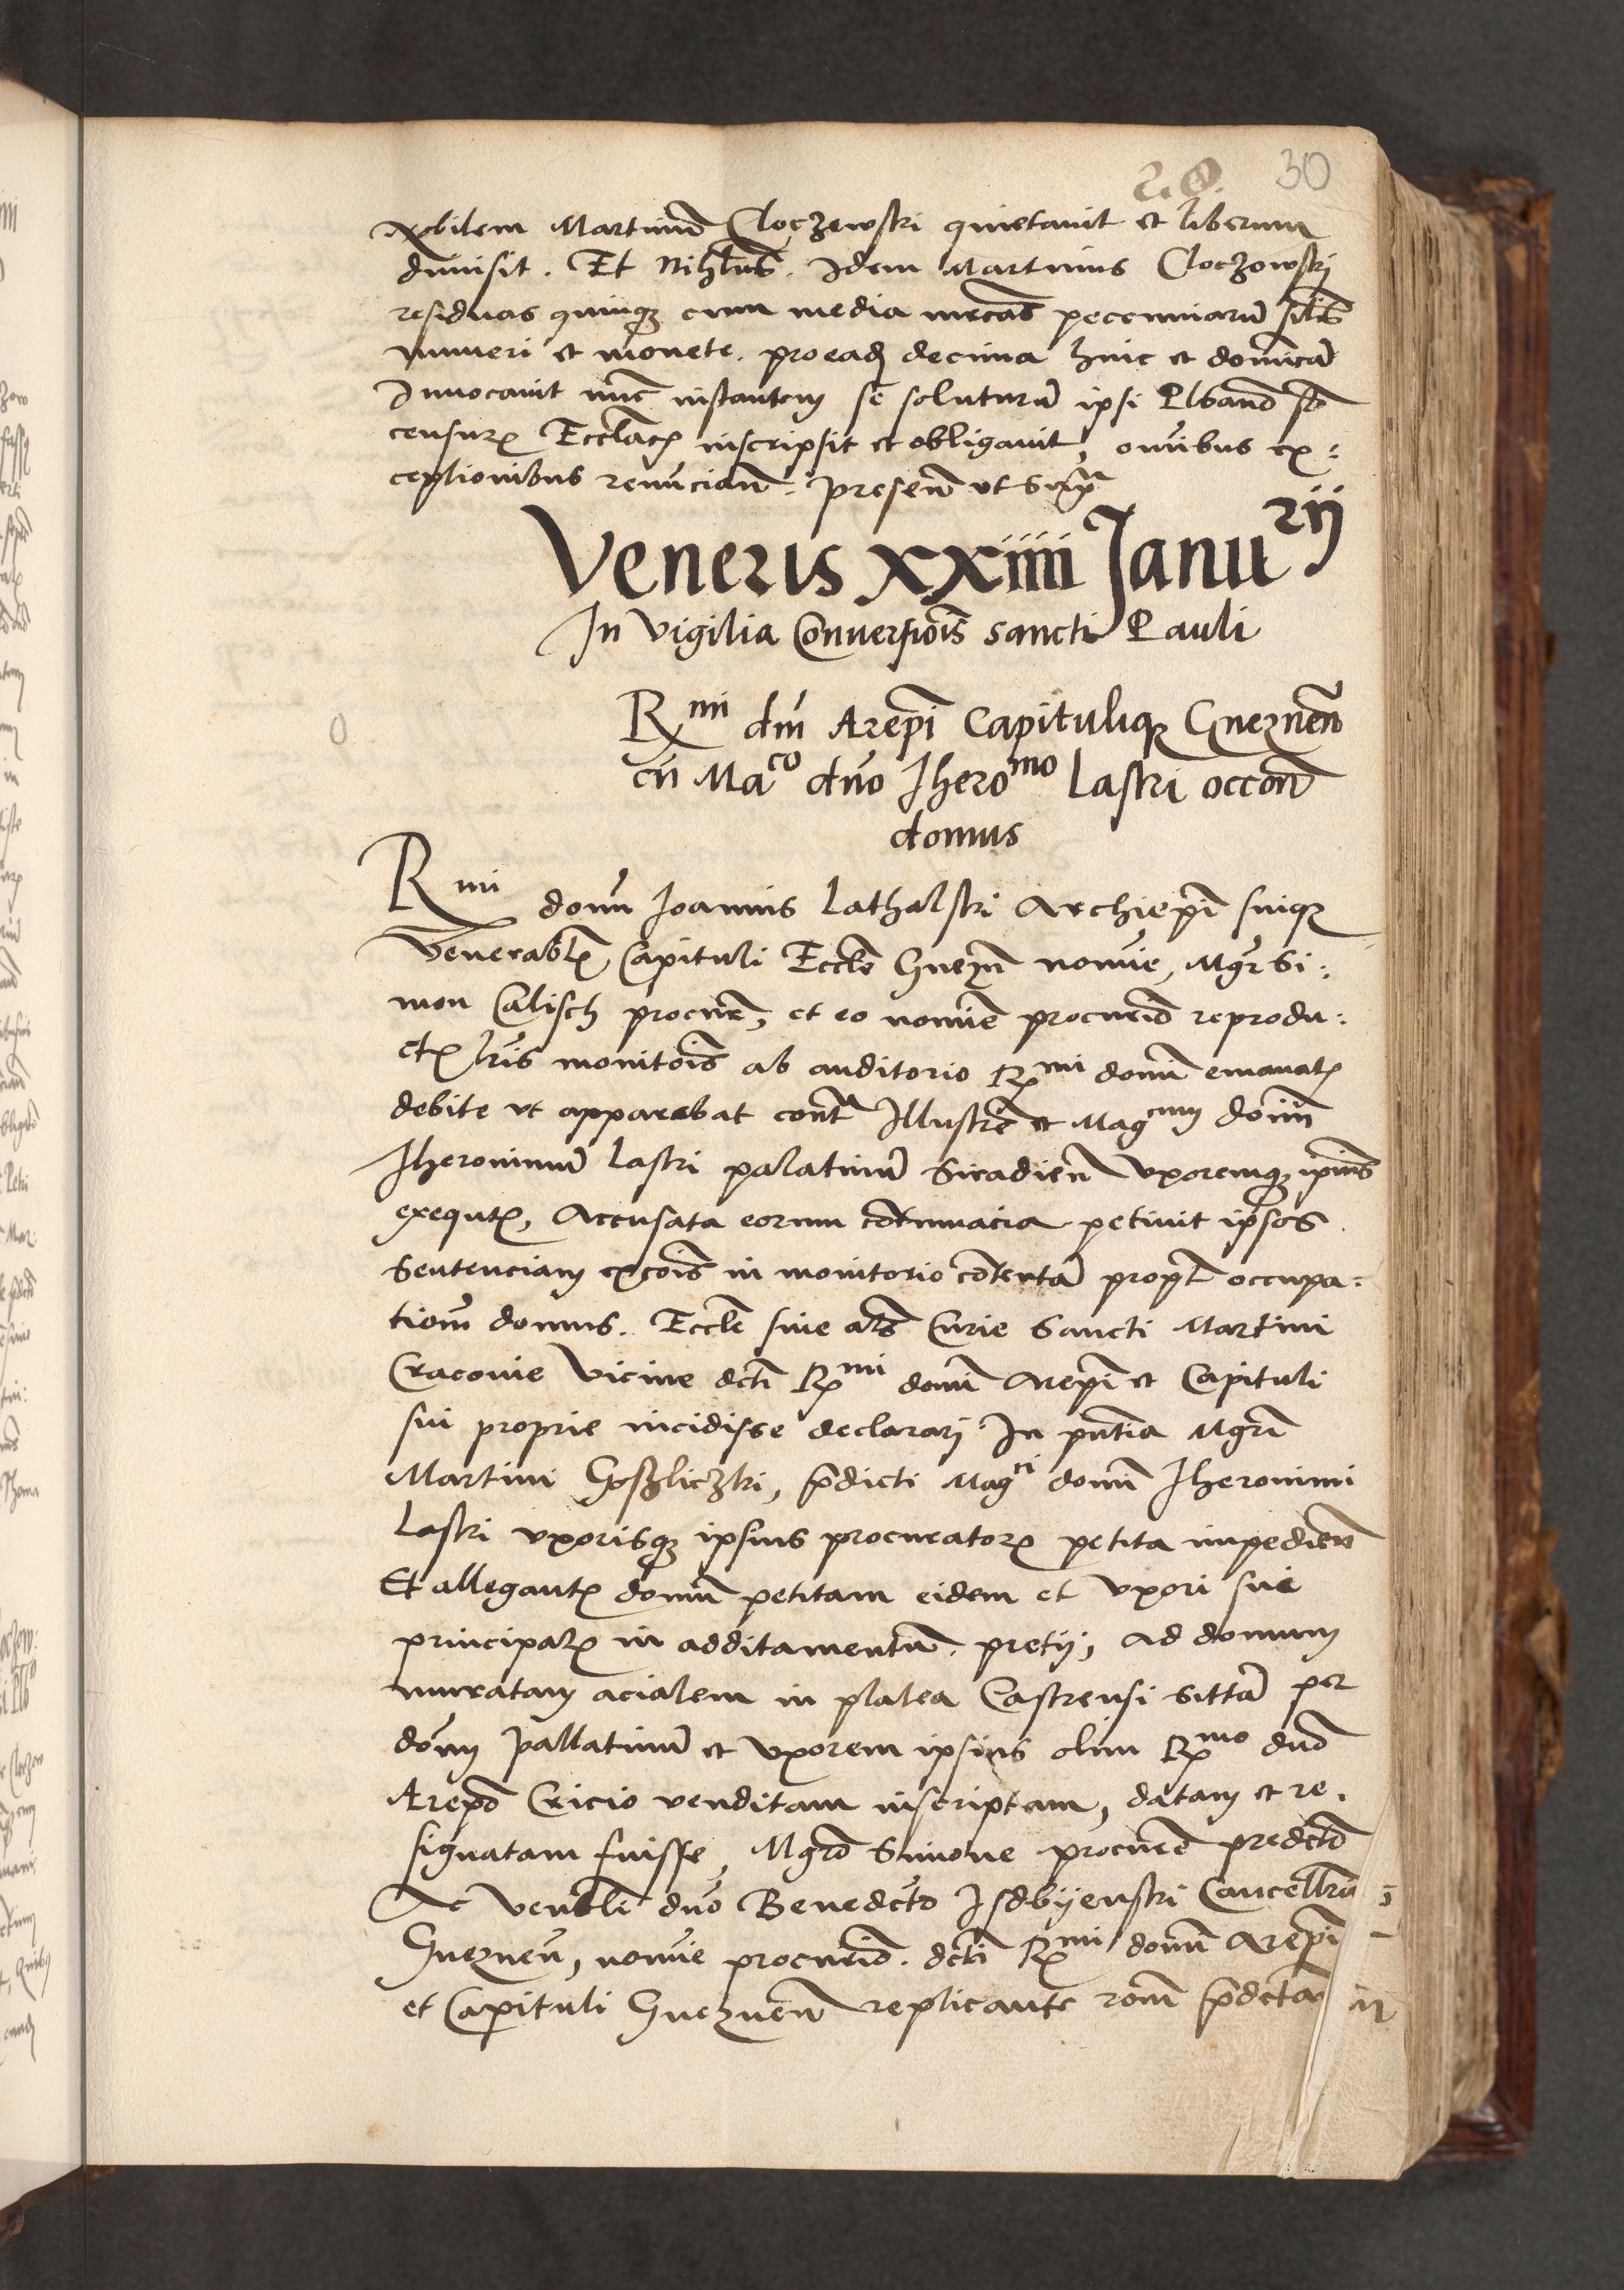 28. 30
Nobilem Martinū Cloczewski quietauit et liberum
dimisit. Et Nihlus. Idem Martinus Cloczowski
residuas quinq3 cum media mrcas peccuniarū silis
numeri et monete. pro ead decima hinc et dominicā
Inuocauit nūc instantem se soluturū ipsi Plbano sb
censur Ecclac inscripsit et obligauit, omībus ex:
ceptionibus renuncian: presen vt Supra
Veneris xxiiii Janurii
In Vigilia Conuersiois sancti Pauli
Rmi dni Arepi Capituliq3 Gneznen
cū Maco dno Jheromo Laski occon
domus
Rmi domi Joannis Lathalski Archiepi suiq3
Venerabl Capituli Eccle Gnezn nomie, Mgr Si:
mon Calisch procur, et eo nomie procurio reprodu:
ct lris monitois ab auditorio Rmi domi emanat
debite vt apparebat contra Illustrē et Magcum domn
Jheronimū Laski palatinū Siradien Vxoremq3 ipius
exequt, Accusata eorum contumacia petiuit ipsos
Sentenciam excois in monitorio contentā propt occupa:
tiom domus. Eccle siue als Curie Sancti Martini
Cracouie Vicine dcti Rmi domi Arepi et Capituli
sui proprie incidisse declarari In pntia Mgri
Martini Goszliczki, pdicti Magci domi Jheronimi
Laski vxorisq3 ipsius procurator petita impedien
Et allegant domū petitam eidem et Vxori sue
principal in additamentū. pretij, Ad domum
muratam acialem in platea Castrensi Sittā per
domn Pallatinū et Vxorem ipsius olim Rmo dno
Arepo Cricio venditam inscriptam, datam et re.
signatam fuisse, Mgro Simone procure predcto
Ac Venbli dno Benedcto Isdbyenski Cancellrio
Gneznen, nomie procurio. dcti Rmi domi Arepi
et Capituli Gneznen replicante rom pdctam